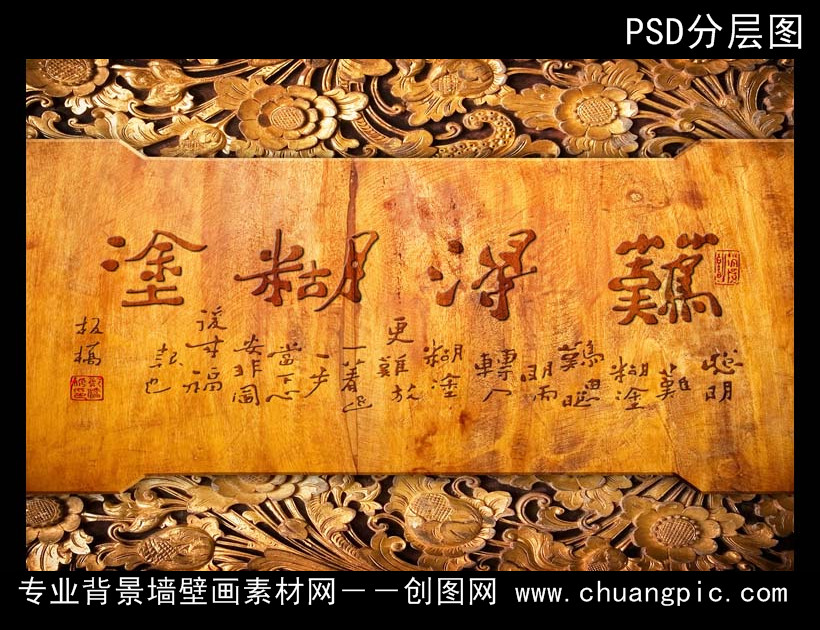 PSD分层图
難得糊塗
聰明
難
糊塗
難由聰
明而
轉入
糊塗
更難放
一着退
一步
當下心
安非圖
後來福
報也
板橋
专业背景墙壁画素材网——创图网 www.chuangpic.com